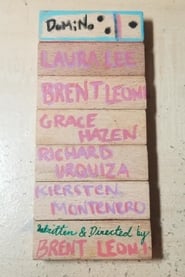 DOMINO
LAURA LEE
BRENT LEONI
GRACE
HAZEN
RICHARD
URQUIZA
KIERSTEN
MONTENERO
Written & Directed by
BRENT LEONI